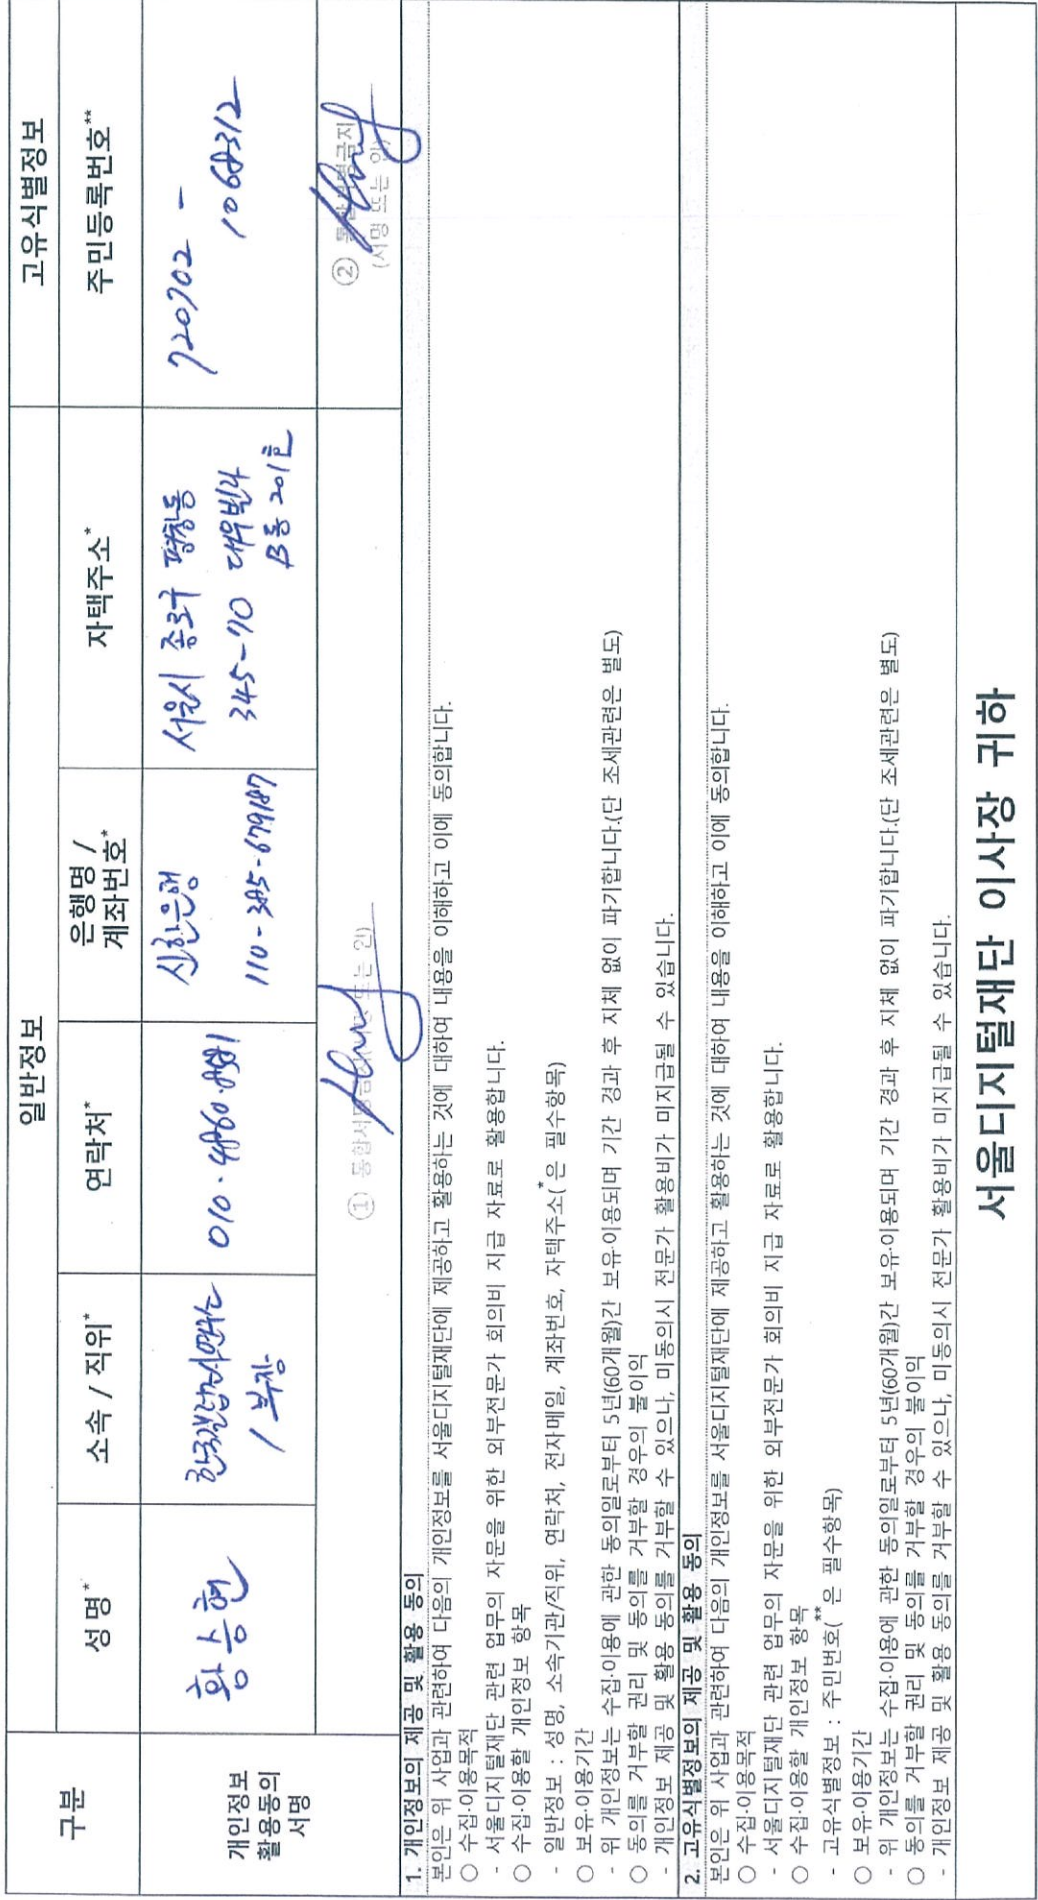 구분
일반정보
고유식별정보
성명*
소속 / 직위*
연락처*
은행명 /
계좌번호*
자택주소*
주민등록번호**
개인정보
활용동의
서명
황승현
/ 부장
신한은행
서울시 종로구 평창동
345-70 대우빌라
B동 201호
720702 -
①
②
(서명 또는 인)
1. 개인정보의 제공 및 활용 동의
본인은 위 사업과 관련하여 다음의 개인정보를 서울디지털재단에 제공하고 활용하는 것에 대하여 내용을 이해하고 이에 동의합니다.
○ 수집·이용목적
- 서울디지털재단 관련 업무의 자문을 위한 외부전문가 회의비 지급 자료로 활용합니다.
○ 수집·이용할 개인정보 항목
- 일반정보 : 성명, 소속기관/직위, 연락처, 전자메일, 계좌번호, 자택주소(*은 필수항목)
○ 보유·이용기간
- 위 개인정보는 수집·이용에 관한 동의일로부터 5년(60개월)간 보유·이용되며 기간 경과 후 지체 없이 파기합니다.(단 조세관련은 별도)
○ 동의를 거부할 권리 및 동의를 거부할 경우의 불이익
- 개인정보 제공 및 활용 동의를 거부할 수 있으나, 미동의시 전문가 활용비가 미지급될 수 있습니다.
2. 고유식별정보의 제공 및 활용 동의
본인은 위 사업과 관련하여 다음의 개인정보를 서울디지털재단에 제공하고 활용하는 것에 대하여 내용을 이해하고 이에 동의합니다.
○ 수집·이용목적
- 서울디지털재단 관련 업무의 자문을 위한 외부전문가 회의비 지급 자료로 활용합니다.
○ 수집·이용할 개인정보 항목
- 고유식별정보 : 주민번호(**은 필수항목)
○ 보유·이용기간
- 위 개인정보는 수집·이용에 관한 동의일로부터 5년(60개월)간 보유·이용되며 기간 경과 후 지체 없이 파기합니다.(단 조세관련은 별도)
○ 동의를 거부할 권리 및 동의를 거부할 경우의 불이익
- 개인정보 제공 및 활용 동의를 거부할 수 있으나, 미동의시 전문가 활용비가 미지급될 수 있습니다.
서울디지털재단 이사장 귀하